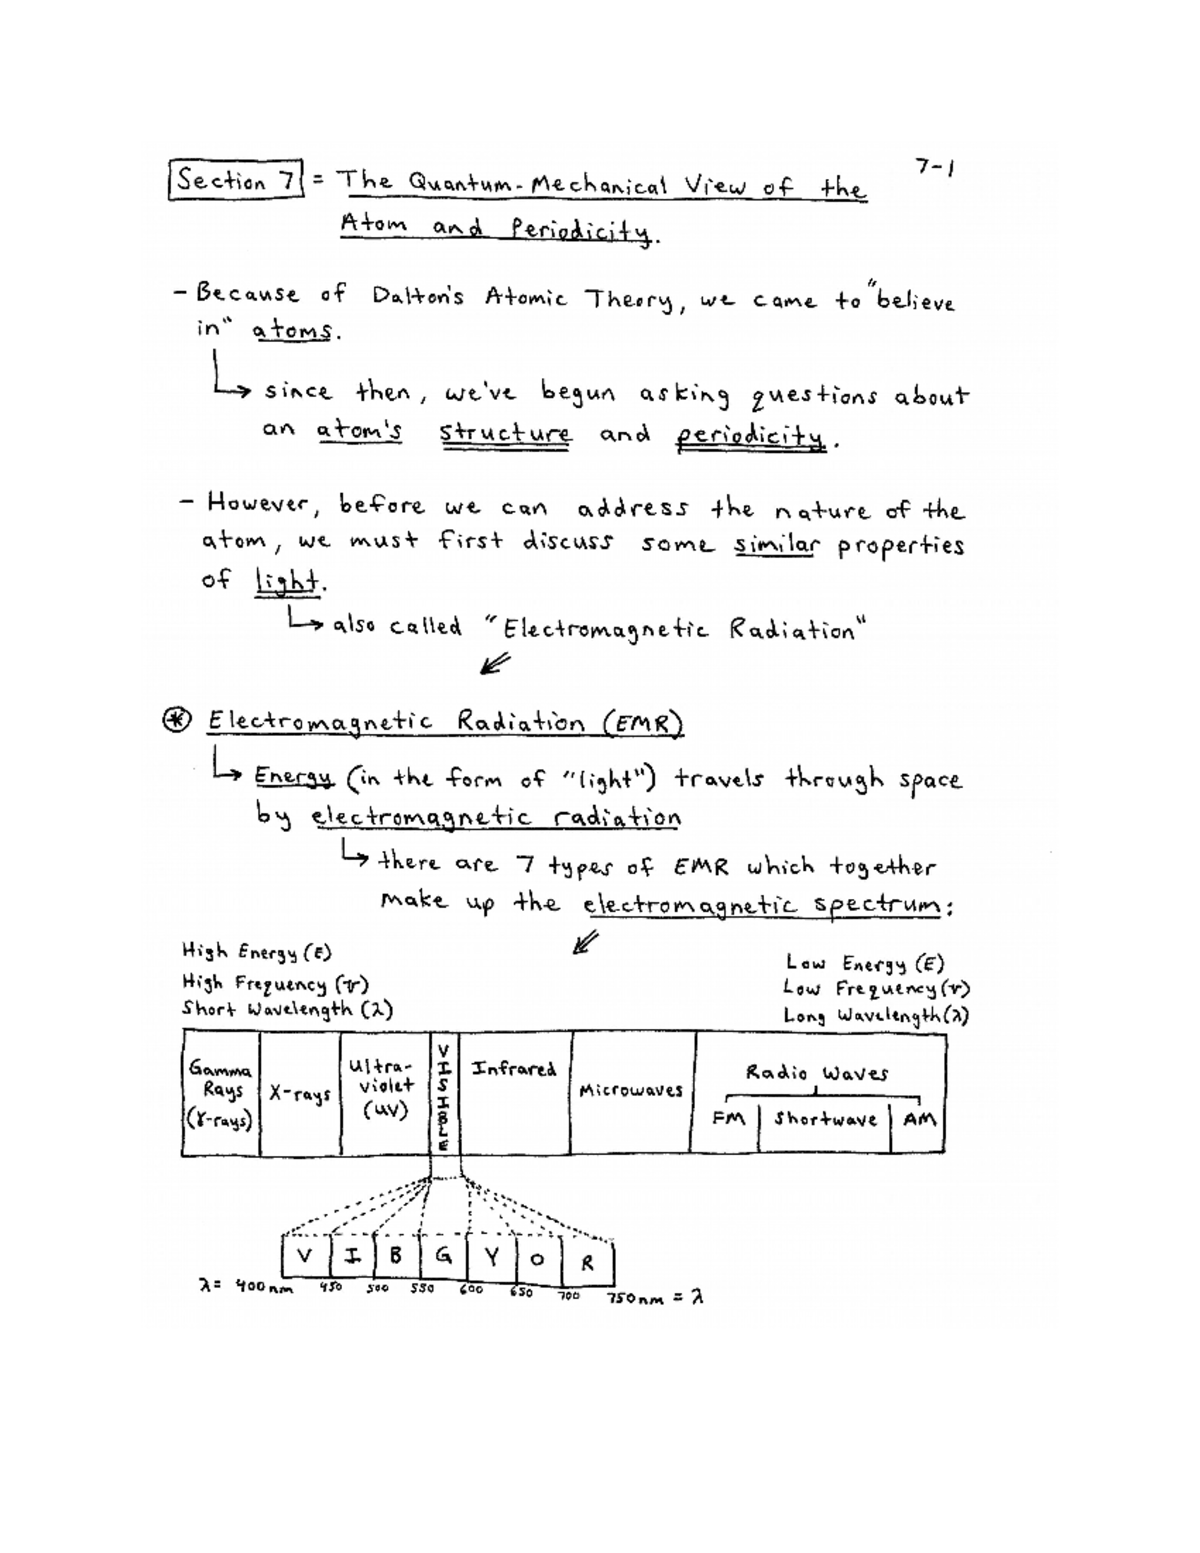 7-1
Section 7 = The Quantum-Mechanical View of the
Atom and Periodicity.
- Because of Dalton's Atomic Theory, we came to "believe
in" atoms.
↳ since then, we've begun asking questions about
an atom's structure and periodicity.
- However, before we can address the nature of the
atom, we must first discuss some similar properties
of light.
↳ also called "Electromagnetic Radiation"
* Electromagnetic Radiation (EMR)
↳ Energy (in the form of "light") travels through space
by electromagnetic radiation
↳ there are 7 types of EMR which together
make up the electromagnetic spectrum:
High Energy (E)
High Frequency (ν)
Short Wavelength (λ)
Low Energy (E)
Low Frequency (ν)
Long Wavelength (λ)
Gamma
Rays
(γ-rays)
X-rays
Ultra-
violet
(UV)
VISIBLE
Infrared
Microwaves
Radio Waves
FM Shortwave AM
V I B G Y O R
λ = 400nm 450 500 550 600 650 700 750nm = λ